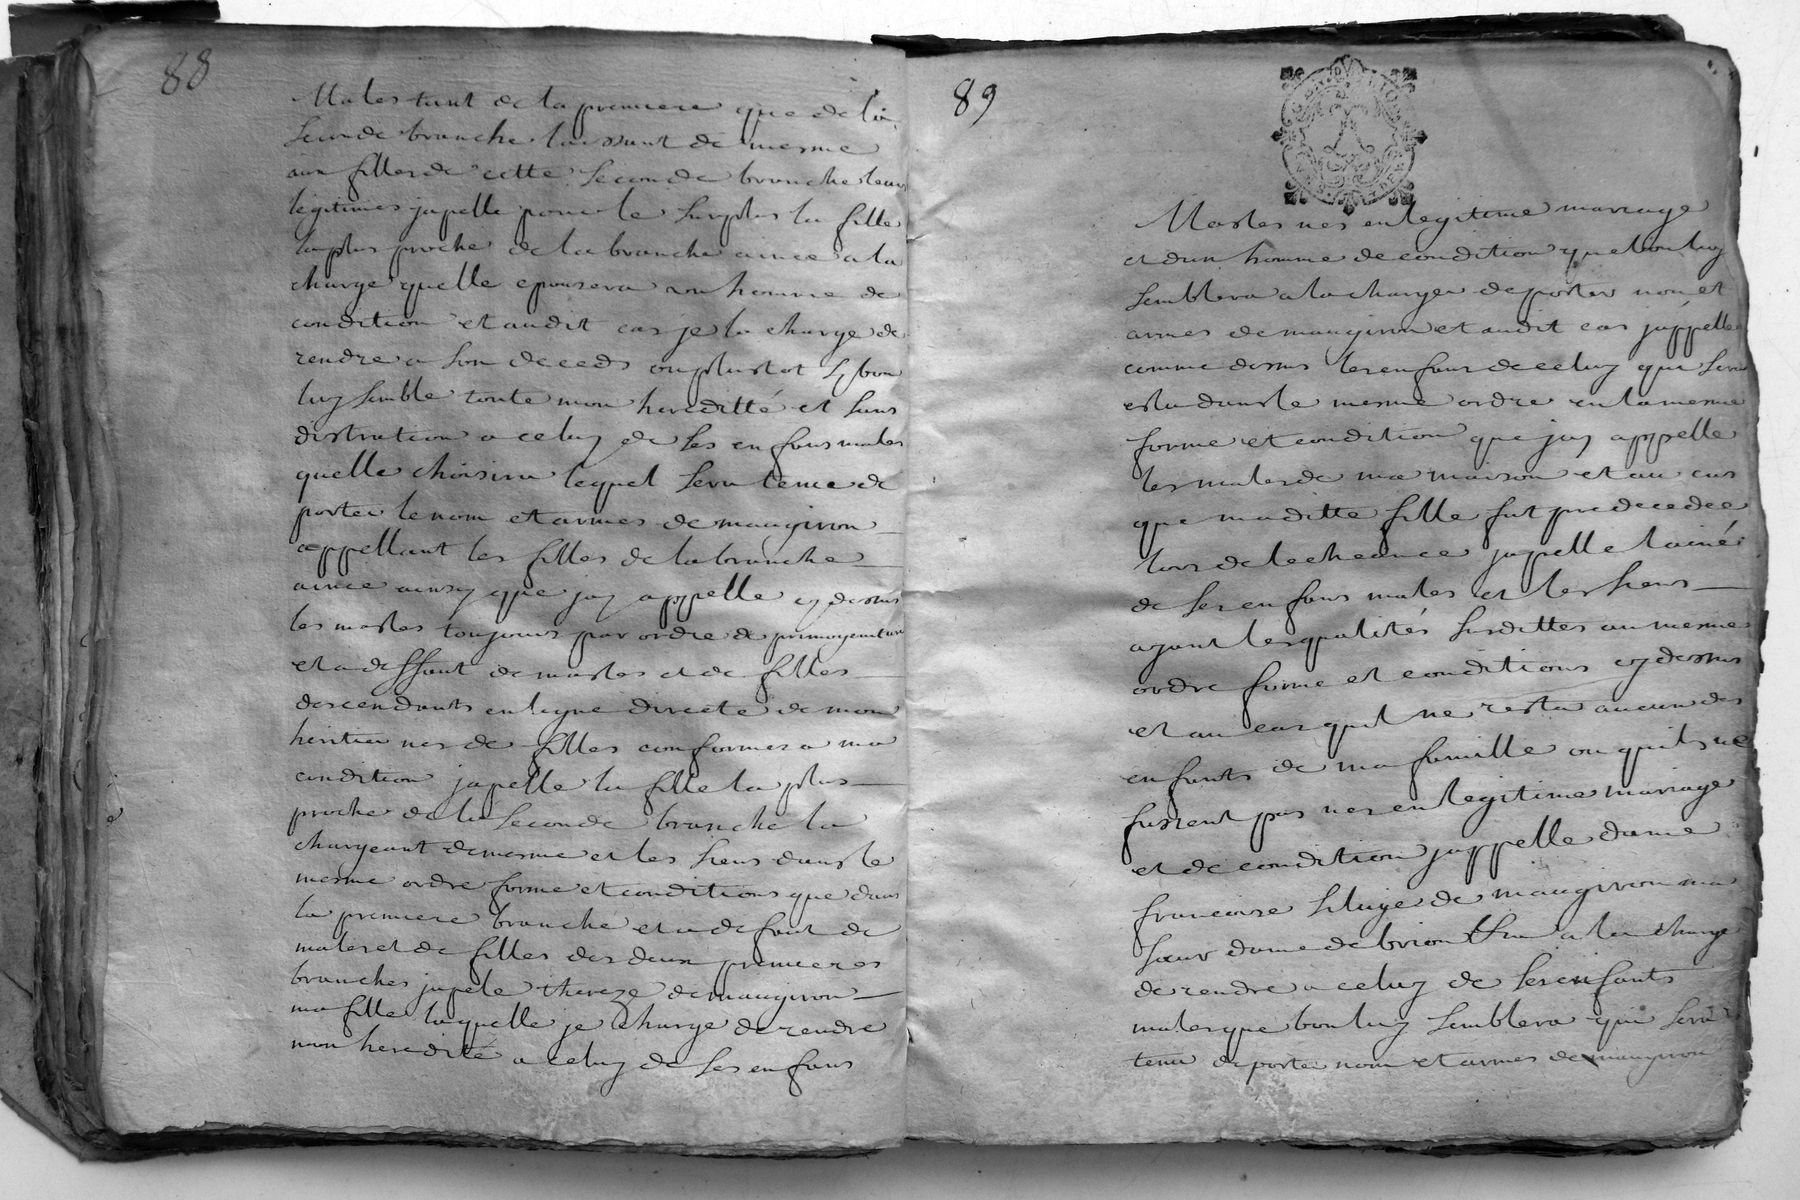 88
Males tant de la premiere que de la
seconde branche laissant de mesme
aux filles de cette seconde branche leurs
legitimes japelle pour le surplus la fille
la plus proche de la branche ainee a la
charge quelle epousera un homme de
condition et audit cas je la charge de
rendre a son deceds ou plustot sy bon
luy semble toute mon heredité et sans
distration a celuy de ses enfans males
quelle choisira lequel sera tenu de
porter le nom et armes de maugiron
appellant les filles de la branche
ainee ainsy que jay appelle cy dessus
les masles toujours par ordre de primogeniture
et a deffaut de masles et de filles
descendants en ligne directe de mon
heritier nes de filles conformes a ma
condition japelle la fille la plus
proche de la seconde branche la
chargeant de mesme et les siens dans le
mesme ordre forme et conditions que dans
la premiere branche et a defaut de
males et de filles des deux premieres
branches japele thereze de maugiron
ma fille laquelle je charge de rendre
mon heredité a celuy de ses enfans
89
Masles nes en legitime mariage
et dun homme de condition que bon luy
semblera a la charge de porter nom et
armes de maugiron et audit cas jappelle
comme dessus les enfans de celuy qui sera
esleu dans le mesme ordre en la mesme
forme et condition que jay appelle
les males de ma maison et au cas
que maditte fille fut predecedee
lors de lecheance japelle lainé
de ses enfans males et les siens
ayant les qualités susdittes au mesme
ordre forme et conditions cy dessus
et au cas quil ne resta aucun des
enfants de ma famille ou quils ne
fussent pas nes en legitime mariage
et de condition jappelle dame
francoise de maugiron ma
soeur dame de a la charge
de rendre a celuy de ses enfants
males que bon luy semblera qui sera
tenu de porter nom et armes de maugiron